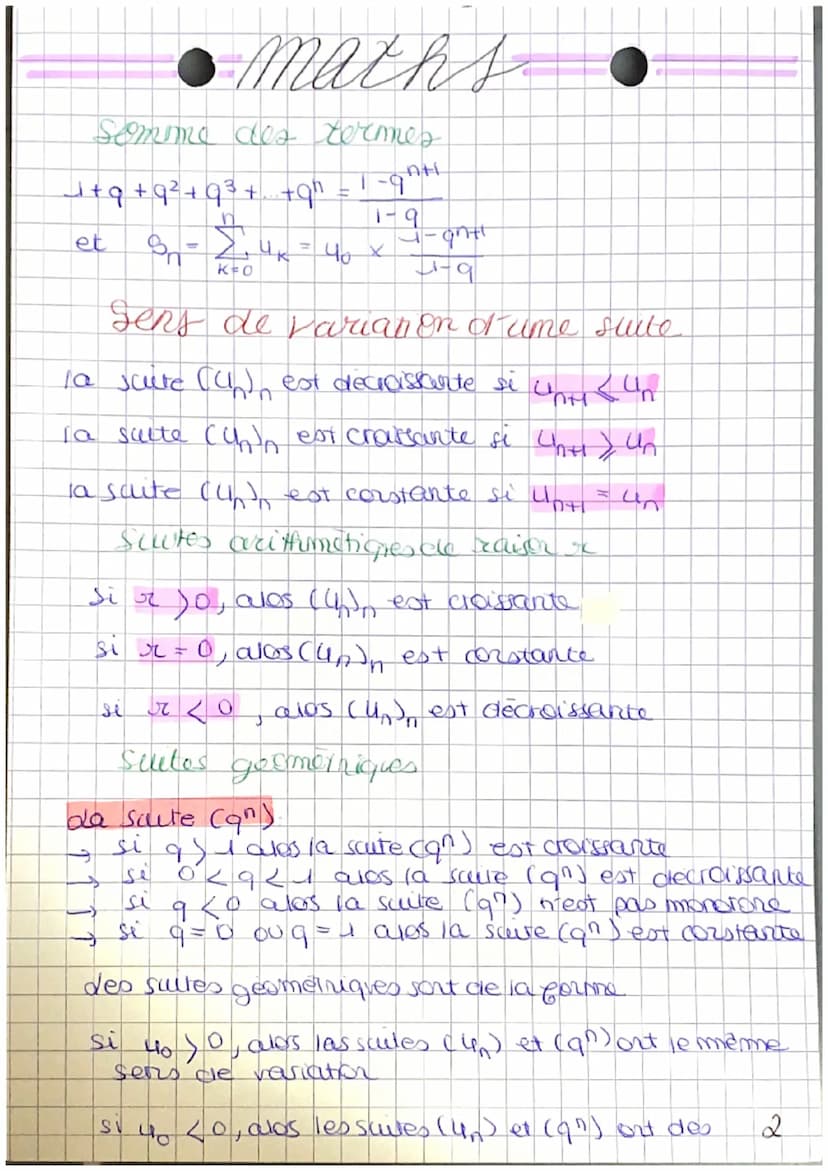 maths
somme des termes
1+q+q²+q³+...+qⁿ = (1-qⁿ⁺¹)/(1-q)
et Sₙ = ∑ₖ₌₀ⁿ uₖ = u₀ × (1-qⁿ⁺¹)/(1-q)
Sens de variation d'une suite
la suite (uₙ)ₙ est décroissante si uₙ₊₁ ⩽ uₙ
la suite (uₙ)ₙ est croissante si uₙ₊₁ ⩾ uₙ
la suite (uₙ)ₙ est constante si uₙ₊₁ = uₙ
Suites arithmétiques de raison r
si r > 0, alos (uₙ)ₙ est croissante
si r = 0, alos (uₙ)ₙ est constante
si r < 0, alos (uₙ)ₙ est décroissante
Suites géométriques
la suite (qⁿ)
→ si q > 1 alos la suite (qⁿ) est croissante
→ si 0 < q < 1 alos la suite (qⁿ) est decroissante
→ si q < 0 alos la suite (qⁿ) n'est pas monotone
→ si q = 0 ou q = 1 alos la suite (qⁿ) est constante
des suites géométriques sont de la forme
si u₀ > 0, alos les suites (uₙ) et (qⁿ) ont le même
sens de variation
si u₀ < 0, alos les suites (uₙ) et (qⁿ) ont des
2